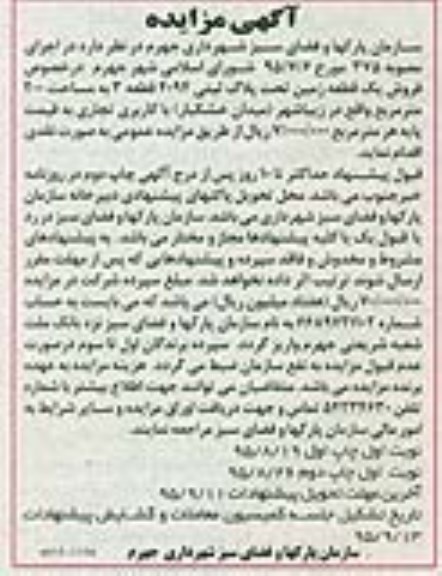 آگهی مزایده
سازمان پارکها و فضای سبز شهرداری جهرم در نظر دارد در اجرای
مصوبه ۳۷۵ مورخ ۹۵/۷/۶ شورای اسلامی شهر جهرم در خصوص
فروش یک قطعه زمین تحت پلاک ثبتی قطعه ۳ به مساحت ۲۰۰
متر مربع واقع در زیباشهر (میدان خشکبار) با کاربری تجاری به قیمت
پایه هر متر مربع ریال از طریق مزایده عمومی به صورت نقدی
اقدام نماید.
قبول پیشنهاد حداکثر تا ۱۰ روز پس از درج آگهی چاپ دوم در روزنامه
خبرجنوب می باشد. محل تحویل پاکتهای پیشنهادی دبیرخانه سازمان
پارکها و فضای سبز شهرداری می باشد. سازمان پارکها و فضای سبز در رد
یا قبول یک یا کلیه پیشنهادها مجاز و مختار می باشد. به پیشنهادهای
مشروط و مخدوش و فاقد سپرده و پیشنهادهایی که پس از مهلت مقرر
ارسال شوند ترتیب اثر داده نخواهد شد. مبلغ سپرده شرکت در مزایده
ریال (هفتاد میلیون ریال) می باشد که می بایست به حساب
شماره به نام سازمان پارکها و فضای سبز نزد بانک ملت
شعبه شریعتی جهرم واریز گردد. سپرده برندگان اول تا سوم در صورت
عدم قبول مزایده به نفع سازمان ضبط می گردد. هزینه مزایده به عهده
برنده مزایده می باشد. متقاضیان می توانند جهت اطلاع بیشتر با شماره
تلفن ۵۴۲۲۴۶۳۰ تماس و جهت دریافت اوراق مزایده و سایر شرایط به
امور مالی سازمان پارکها و فضای سبز مراجعه نمایند.
نوبت اول چاپ اول ۹۵/۸/۱۹
نوبت اول چاپ دوم ۹۵/۸/۲۶
آخرین مهلت تحویل پیشنهادات ۹۵/۹/۱۱
تاریخ تشکیل جلسه کمیسیون معاملات و گشایش پیشنهادات
۹۵/۹/۱۳
سازمان پارکها و فضای سبز شهرداری جهرم